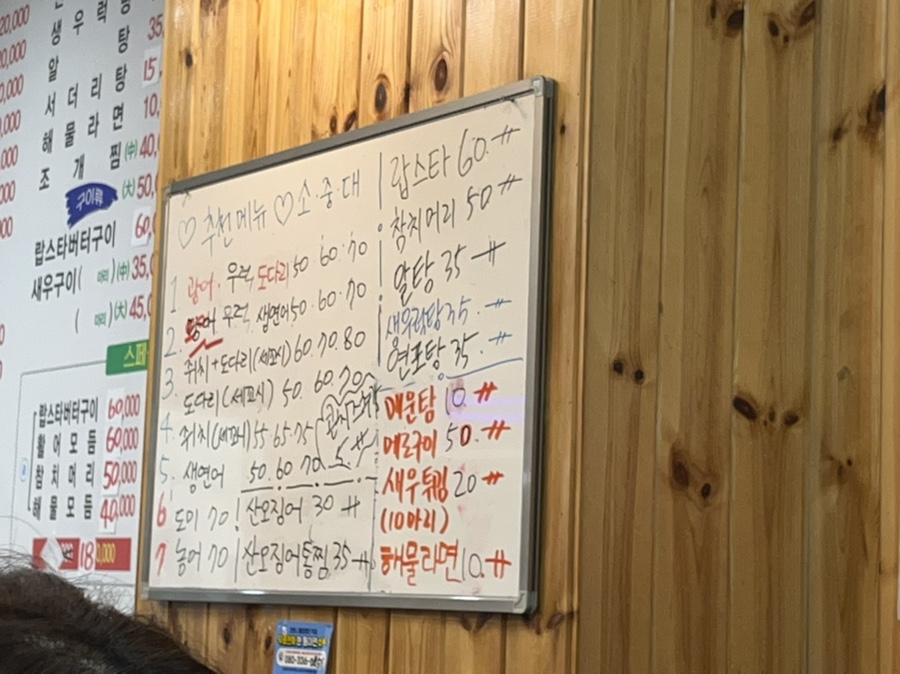 20,000
생우럭탕 35,
알탕 15,
서더리탕 10,
해물라면
조개찜 (中) 40,
(大) 50,
구이류
랍스타버터구이 60,
새우구이( 마리)(中) 35,
( 마리)(大) 45,
스페
랍스타버터구이 60,000
활어모듬 60,000
참치머리 50,000
해물모듬 40,000
♡ 추천메뉴 ♡ 소·중·대
1 광어·우럭 도다리 50 60·70
2. 광어 우럭 생연어 50·60·70
3. 쥐치+도다리(세꼬시) 60.70.80
도다리(세꼬시) 50. 60. 70
4. 쥐치(세꼬시) 55·65·75
5. 생연어 50.60 70
6 도미 70
7 농어 70
산오징어 30 #
산오징어통찜 35 #
랍스타 60.#
참치머리 50 #
알탕 35 #
새우럭탕 35. #
연포탕 35. #
매운탕 10. #
메로구이 50. #
새우튀김 20 #
(10마리)
해물라면 10. #